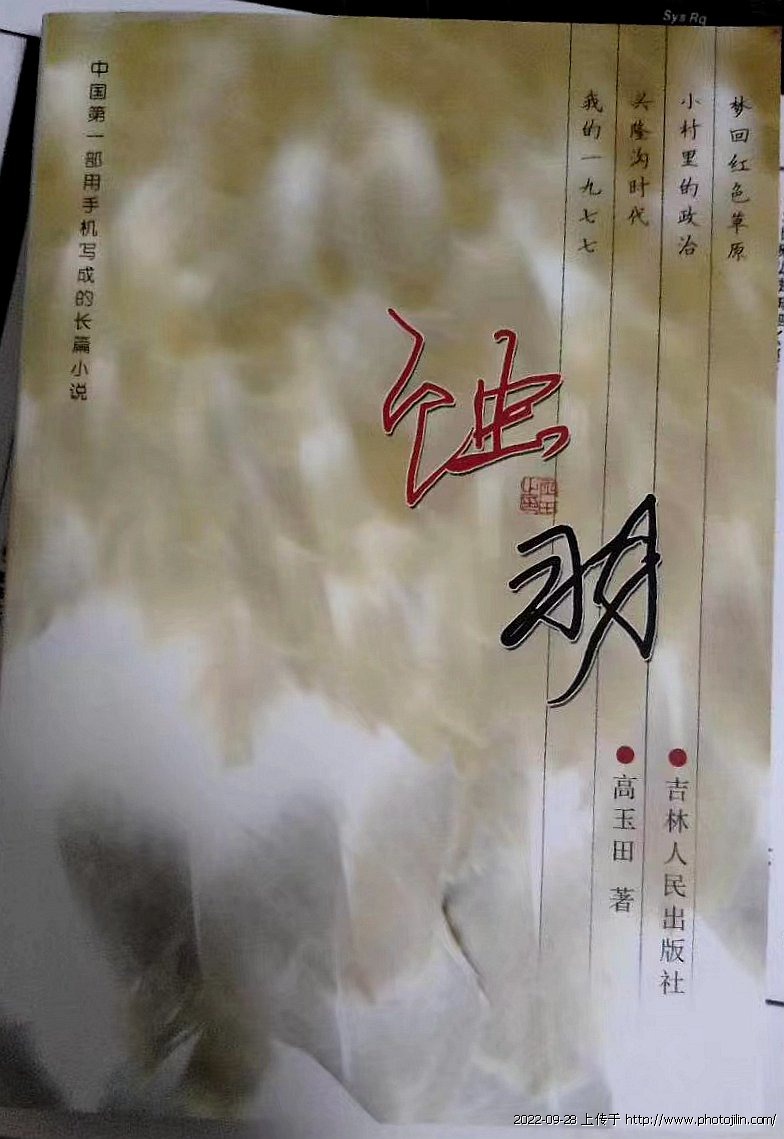 Sys Rq
梦回红色草原
小村里的政治
兴隆沟时代
我的一九七七
中国第一部用手机写成的长篇小说
蚀
明
吉林人民出版社
高玉田 著
2022-09-28 上传于 http://www.photojilin.com/